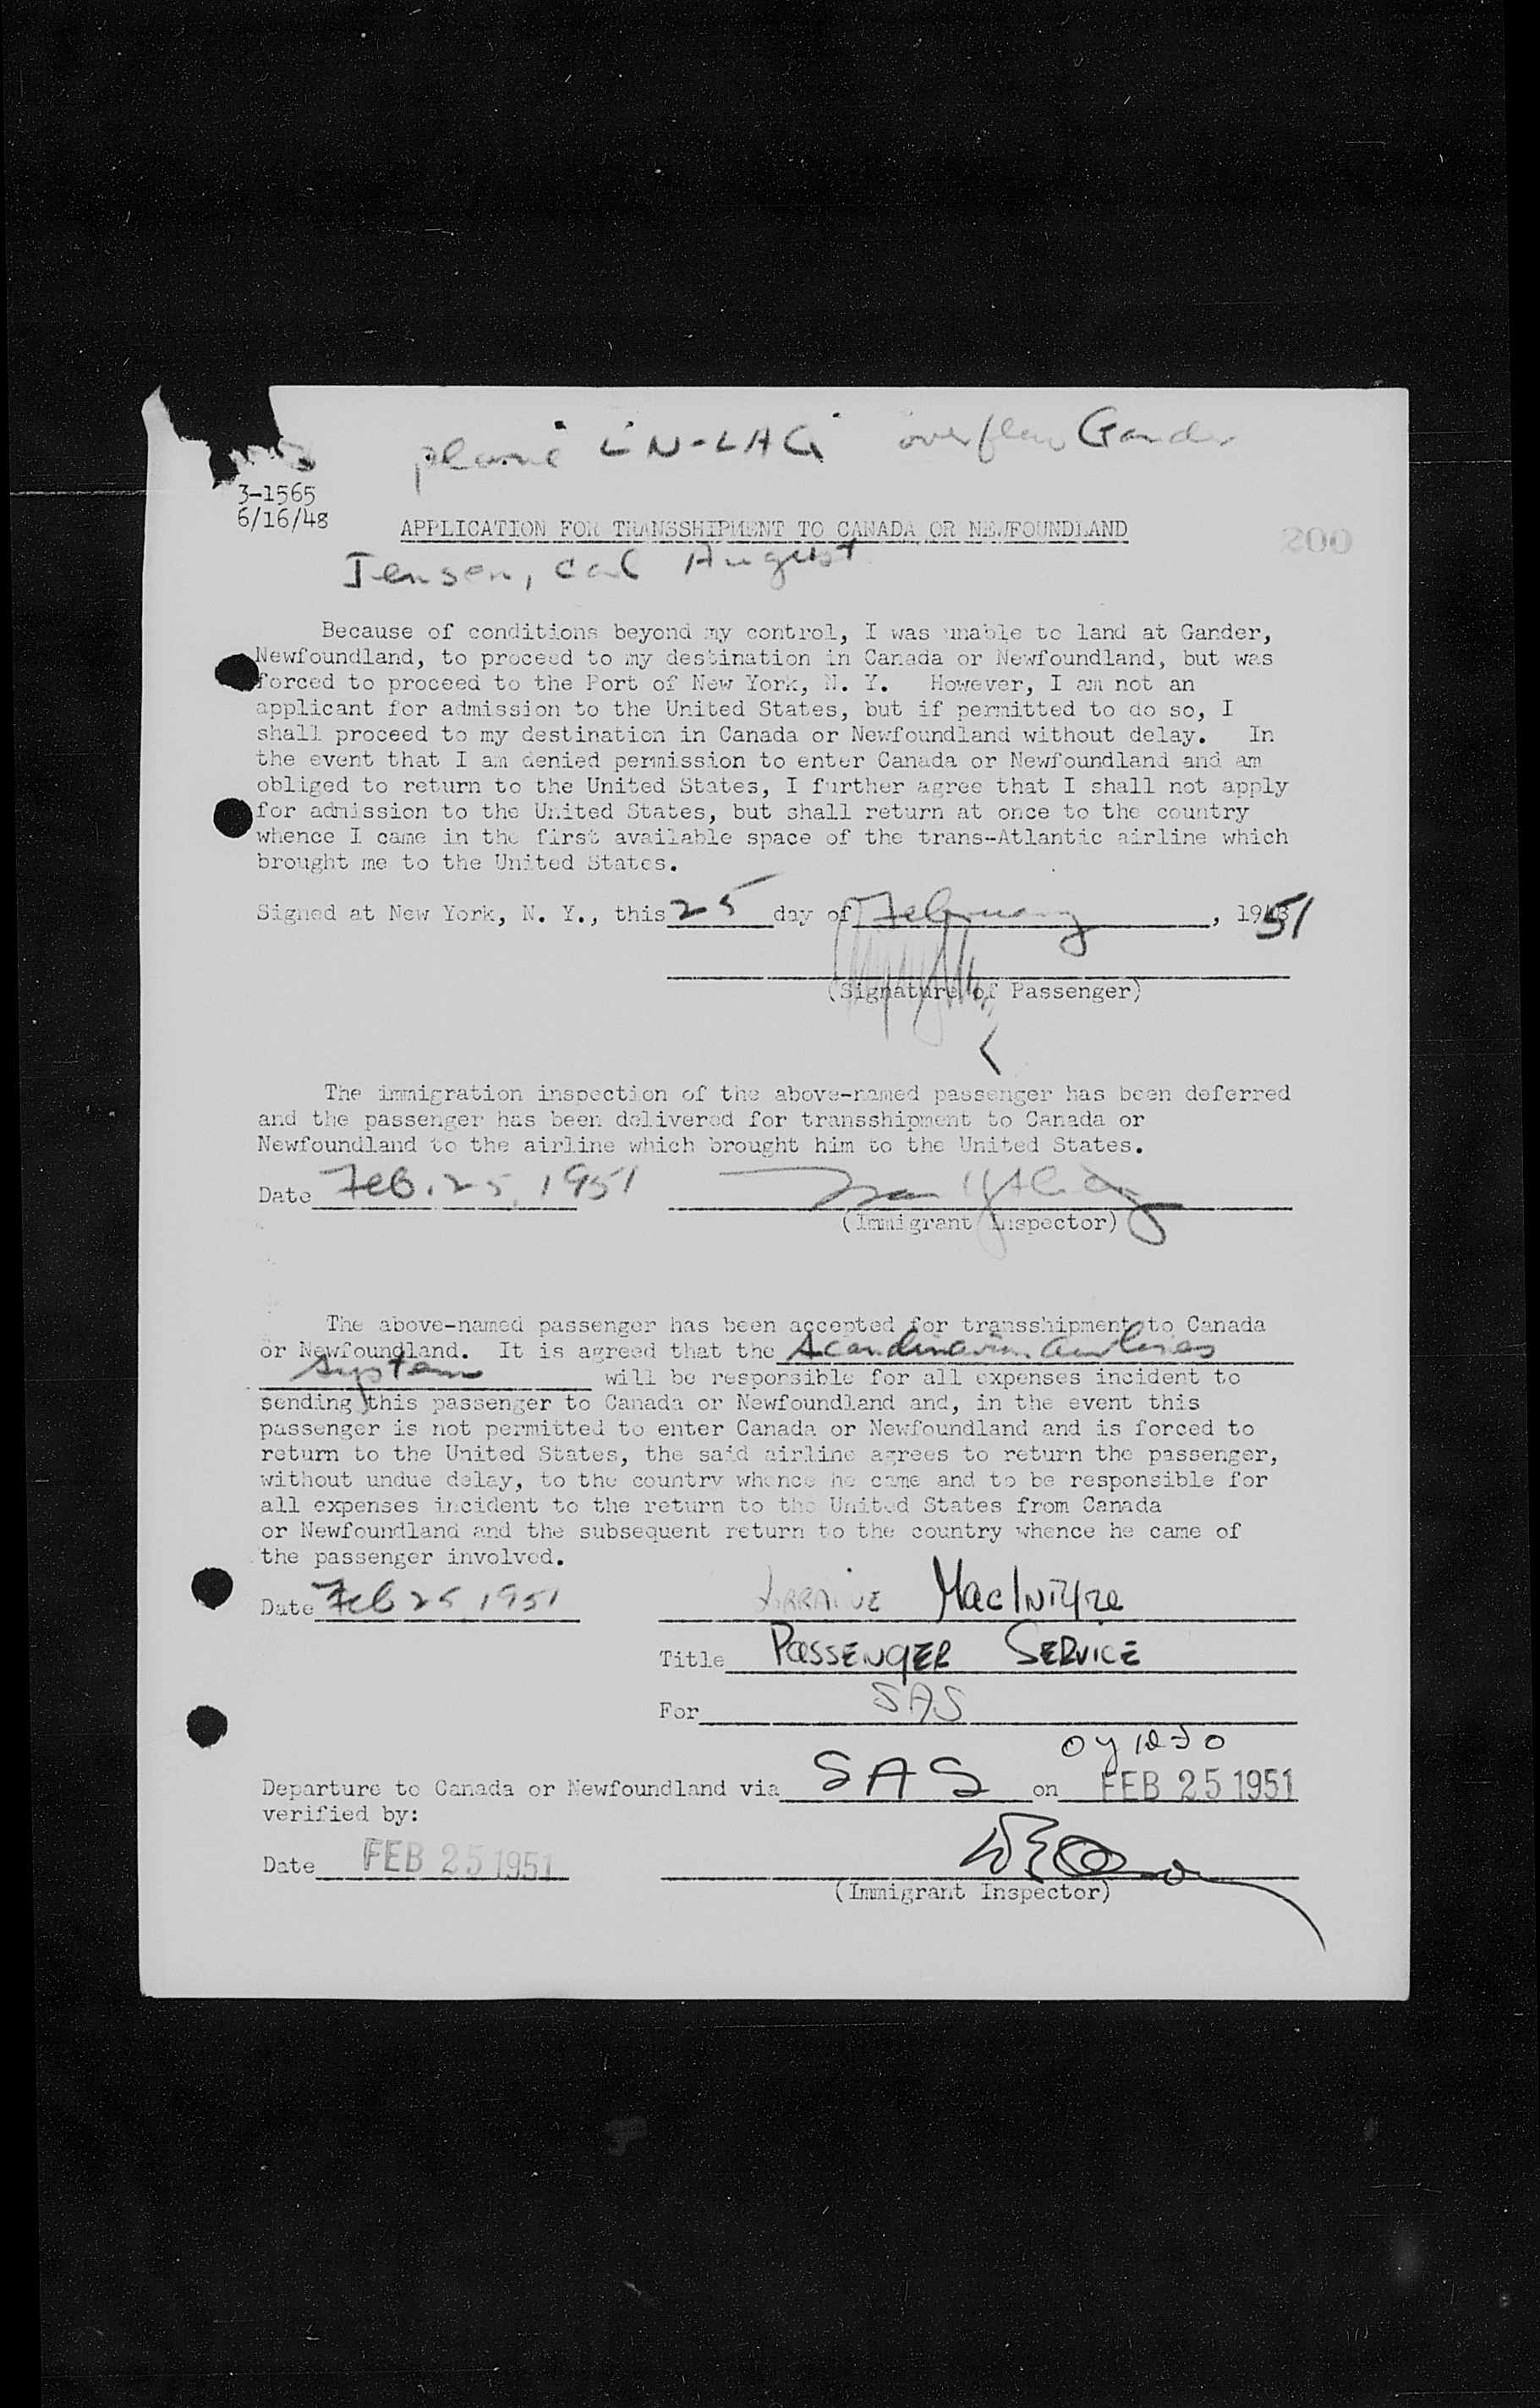 plane LN-LAG overflew Gander
3-1565
6/16/48
APPLICATION FOR TRANSSHIPMENT TO CANADA OR NEWFOUNDLAND
200
Jensen, Carl August
Because of conditions beyond my control, I was unable to land at Gander,
Newfoundland, to proceed to my destination in Canada or Newfoundland, but was
forced to proceed to the Port of New York, N. Y. However, I am not an
applicant for admission to the United States, but if permitted to do so, I
shall proceed to my destination in Canada or Newfoundland without delay. In
the event that I am denied permission to enter Canada or Newfoundland and am
obliged to return to the United States, I further agree that I shall not apply
for admission to the United States, but shall return at once to the country
whence I came in the first available space of the trans-Atlantic airline which
brought me to the United States.
Signed at New York, N. Y., this 25 day of February, 1951
(Signature of Passenger)
The immigration inspection of the above-named passenger has been deferred
and the passenger has been delivered for transshipment to Canada or
Newfoundland to the airline which brought him to the United States.
Date Feb. 25, 1951
(Immigrant Inspector)
The above-named passenger has been accepted for transshipment to Canada
or Newfoundland. It is agreed that the Scandinavian Airlines
System will be responsible for all expenses incident to
sending this passenger to Canada or Newfoundland and, in the event this
passenger is not permitted to enter Canada or Newfoundland and is forced to
return to the United States, the said airline agrees to return the passenger,
without undue delay, to the country whence he came and to be responsible for
all expenses incident to the return to the United States from Canada
or Newfoundland and the subsequent return to the country whence he came of
the passenger involved.
Date Feb 25 1951 Lorraine MacIntyre
Title PASSENGER SERVICE
For SAS
Departure to Canada or Newfoundland via SAS on FEB 25 1951
verified by:
Date FEB 25 1951
(Immigrant Inspector)